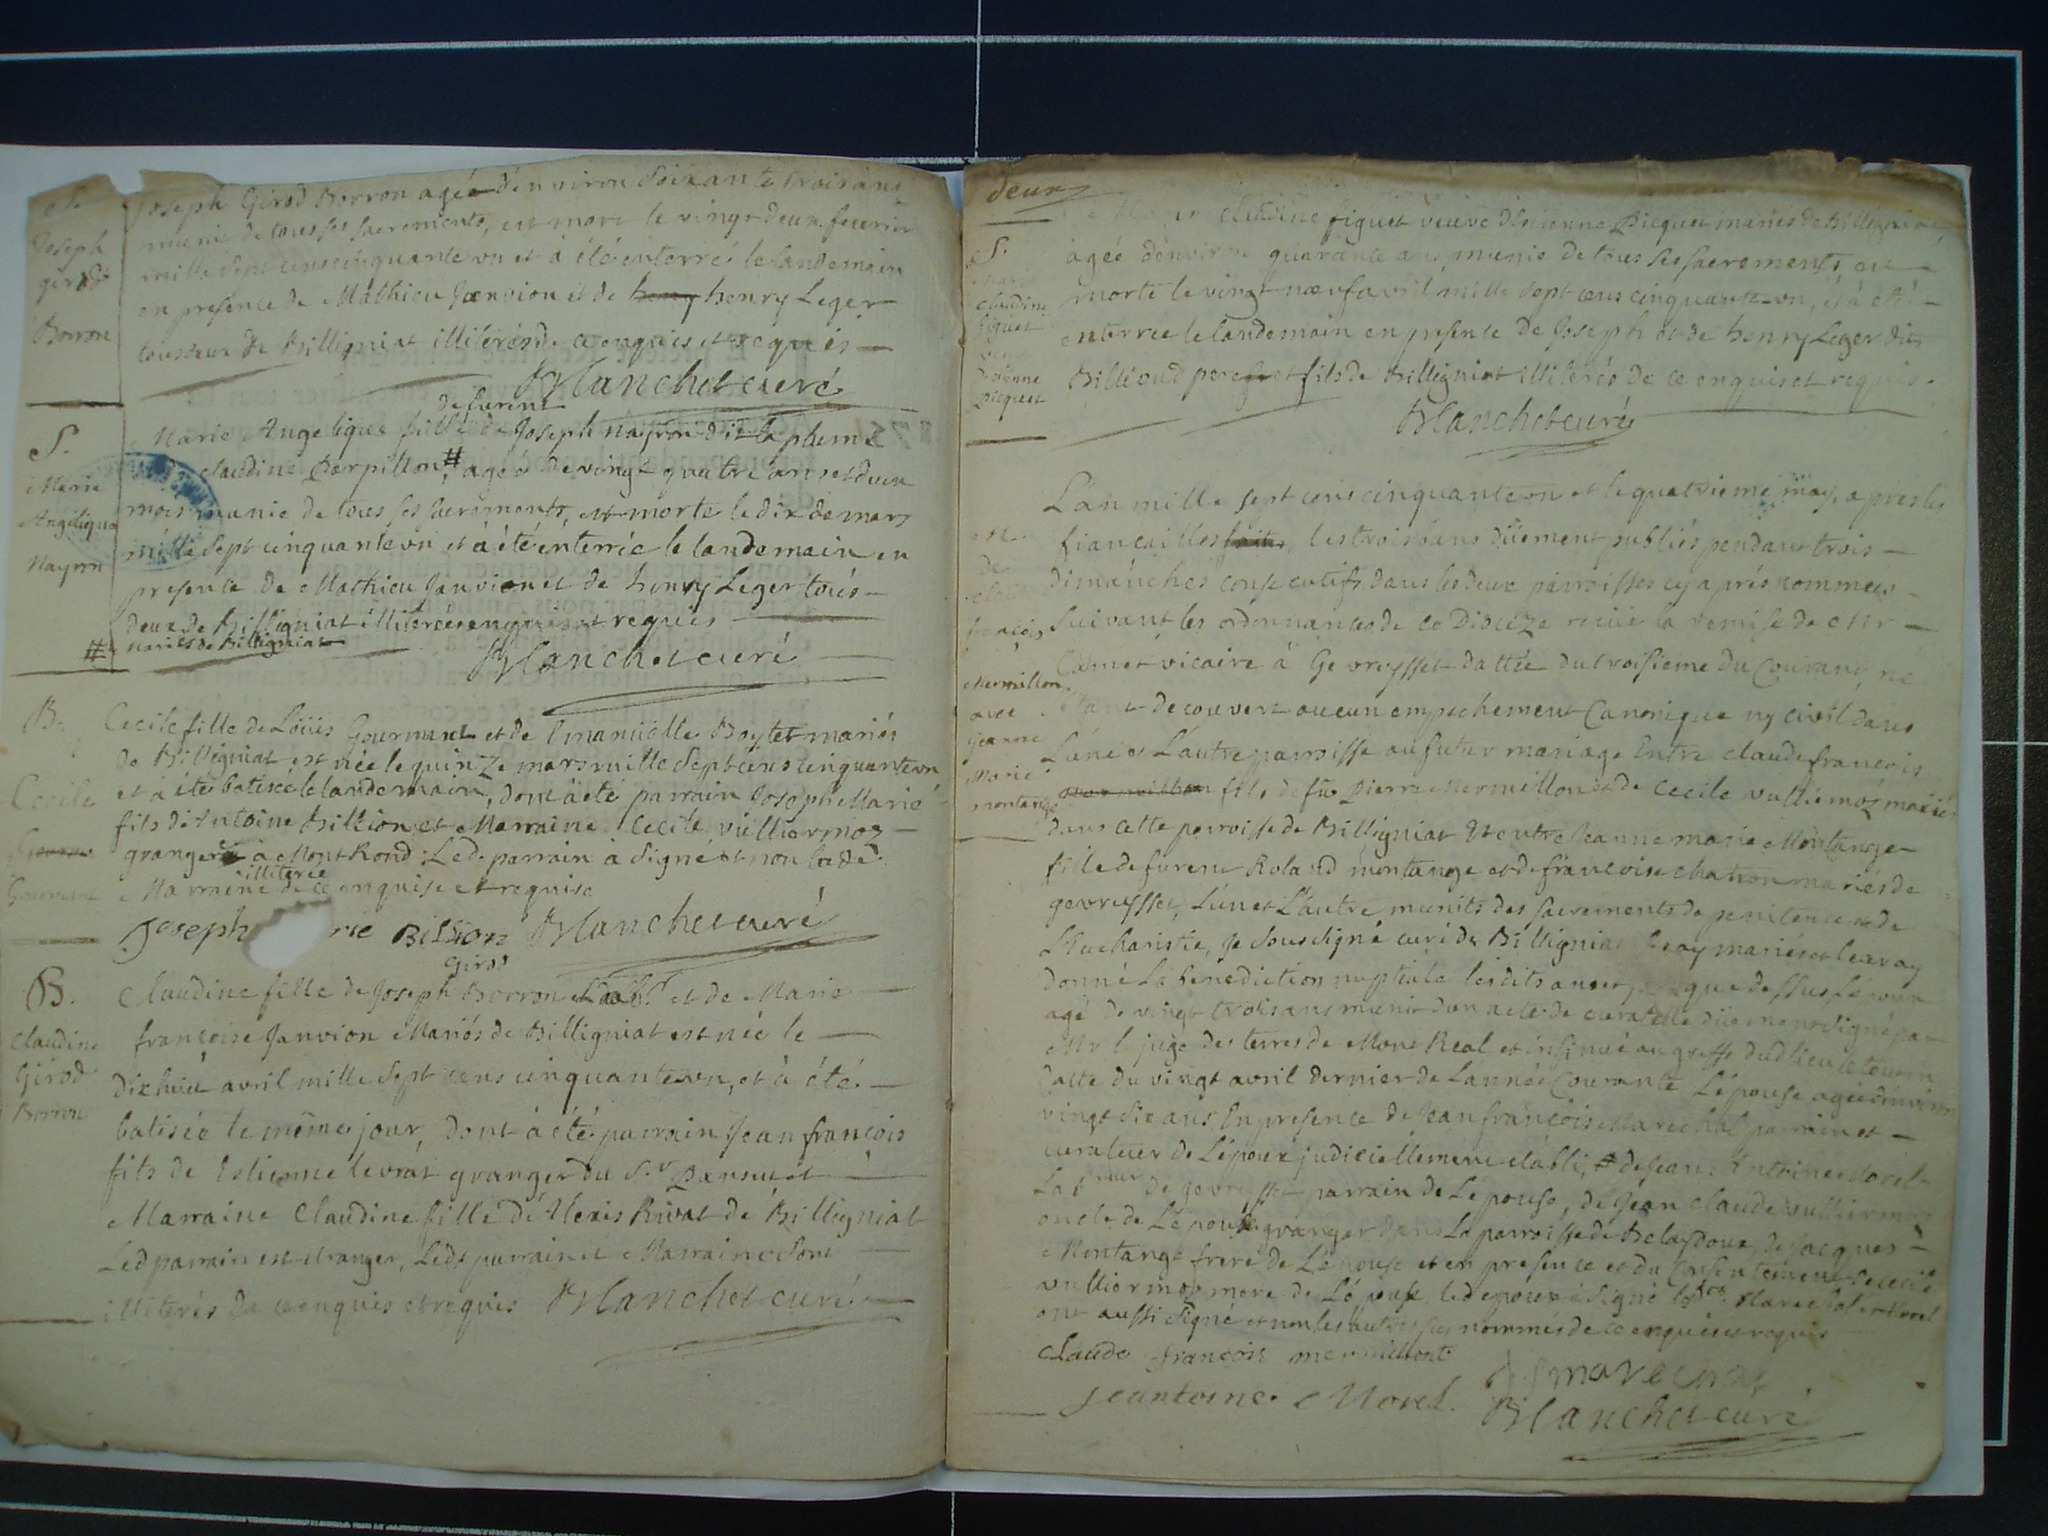 S.
Joseph
girod
Borron
Joseph Girod Borron agée d'environ Soixante trois ans
munis de tous ses sacrements, est mort le vingt deux feuvrier
mille sept cens cinquante un et à été enterré le landemain
en presence de Mathieu Janvion et de henry henry Leger
tous deux de Billigniat illitérés de ce enquis et requis
Blanchet curé
S.
Marie
Angélique
Nayron
defunt
Marie Angelique fille de Joseph Nayron dit la plume
claudine Berpillon, # agée de vingt quatre ans et d'un
mois munie de tous ses sacrements, est morte le dix de mars
mille sept cinquante un et à été enterrée le landemain en
presence de Mathieu Janvion et de henry Leger tous
deux de Billigniat illiterées enquis et requis
# mariés de Billigniat
Blanchet curé
B.
Cecile
Gourmant
Cecile fille de Loüis Gourmant et de Emanüelle Boytet mariés
de Billigniat est née le quinze mars mille sept cens cinquante un
et à été batisée le landemain, dont à été parrain Joseph Marie
fils d'Antoine Billion et Marraine Cecile vulliermoz
granger à Mont Rond. Led. parrain à signé et non lade
Marraine illiterée de ce enquise et requise
Joseph rie Billion Blanchet curé
B.
Claudine
Girod
Borron
Girod
Claudine fille de Joseph Borron et de Marie
françoise Janvion Mariés de Billigniat est née le
dix huit avril mille sept cens cinquante un, et à été
batisée le même jour, dont à été parrain Jean françois
fils de Estienne levrat granger du Sr. et
Marraine Claudine fille de Alexis Rivat de Billigniat
Led parrain est etranger, Leds parrain et Marraine sont
illiterés de ce enquis et requis Blanchet curé
deux
S.
Marie
claudine
figuet
veuve
d'etienne
picquet
claudine figuet veuve d'Etienne Picquet mariés de Billigniat
agée d'environ quarante ans, munie de tous ses sacrements, est
morte le vingt nœuf avril mille sept cens cinquante un, et à été
enterrée le landemain en presence de Joseph et de henry Leger dit
Billioud pere et fils de Billigniat illiterés de ce enquis et requis.
Blanchet curé
M.
de
claude
françois
Mermillon
avec
jeanne
Marie
montange
L'an mille sept cens cinquante un et le quatrieme may, apres les
fiancailles faites, les trois bans düement publiés pendant trois
dimanches consecutifs dans les deux parroisses cy après nommées
suivant les ordonnances de ce Dioceze reçüe la remise de Mr
Camet vicaire à Gevreysset dattée du troisieme du Courant, ne
s'étant decouvert aucun empechement Canonique ny civil dans
L'une et L'autre parroisse au futur mariage Entre claude françois
fils de fû Pierre Mermillon et de Cecile vulliermoz mariés
dans cette parroisse de Billigniat Et entre Jeanne marie Montange
fille de furent Roland montange et de françoise chatron mariés de
gevreysset, L'un et L'autre munits des sacrements de penitence et de
L'Eucharistie, Je soussigné curé de Billigniat les ay mariés et leur ay
donné La benediction nuptiale lesdits an et jour que dessus L'époux
agé de vingt trois ans munit d'un acte de curatelle düement signé par
Mr le juge des terres de Mont Real et insinué au greffe dud lieu le tout en
datte du vingt avril dernier de L'année Courante L'épouse agée d'environ
vingt six ans En presence de Jean françois Marechal parrain et
curateur de L'époux judiciellement établi, # de Jean Antoine Morel
La de gevreysset parrain de L'épouse, de Jean Claude vulliermoz
oncle de L'époux granger dans La parroisse de Belaydoux, de Jacques
Montange frere de L'épouse et en presence et du Consentement de cecile
vulliermoz mere de L'époux, led epoux à signé Marechal et Morel
ont aussi signé et non les autres sus nommés de ce enquis et requis
Claude françois mermillont
Jeantoine Morel. J f marechal
Blanchet curé